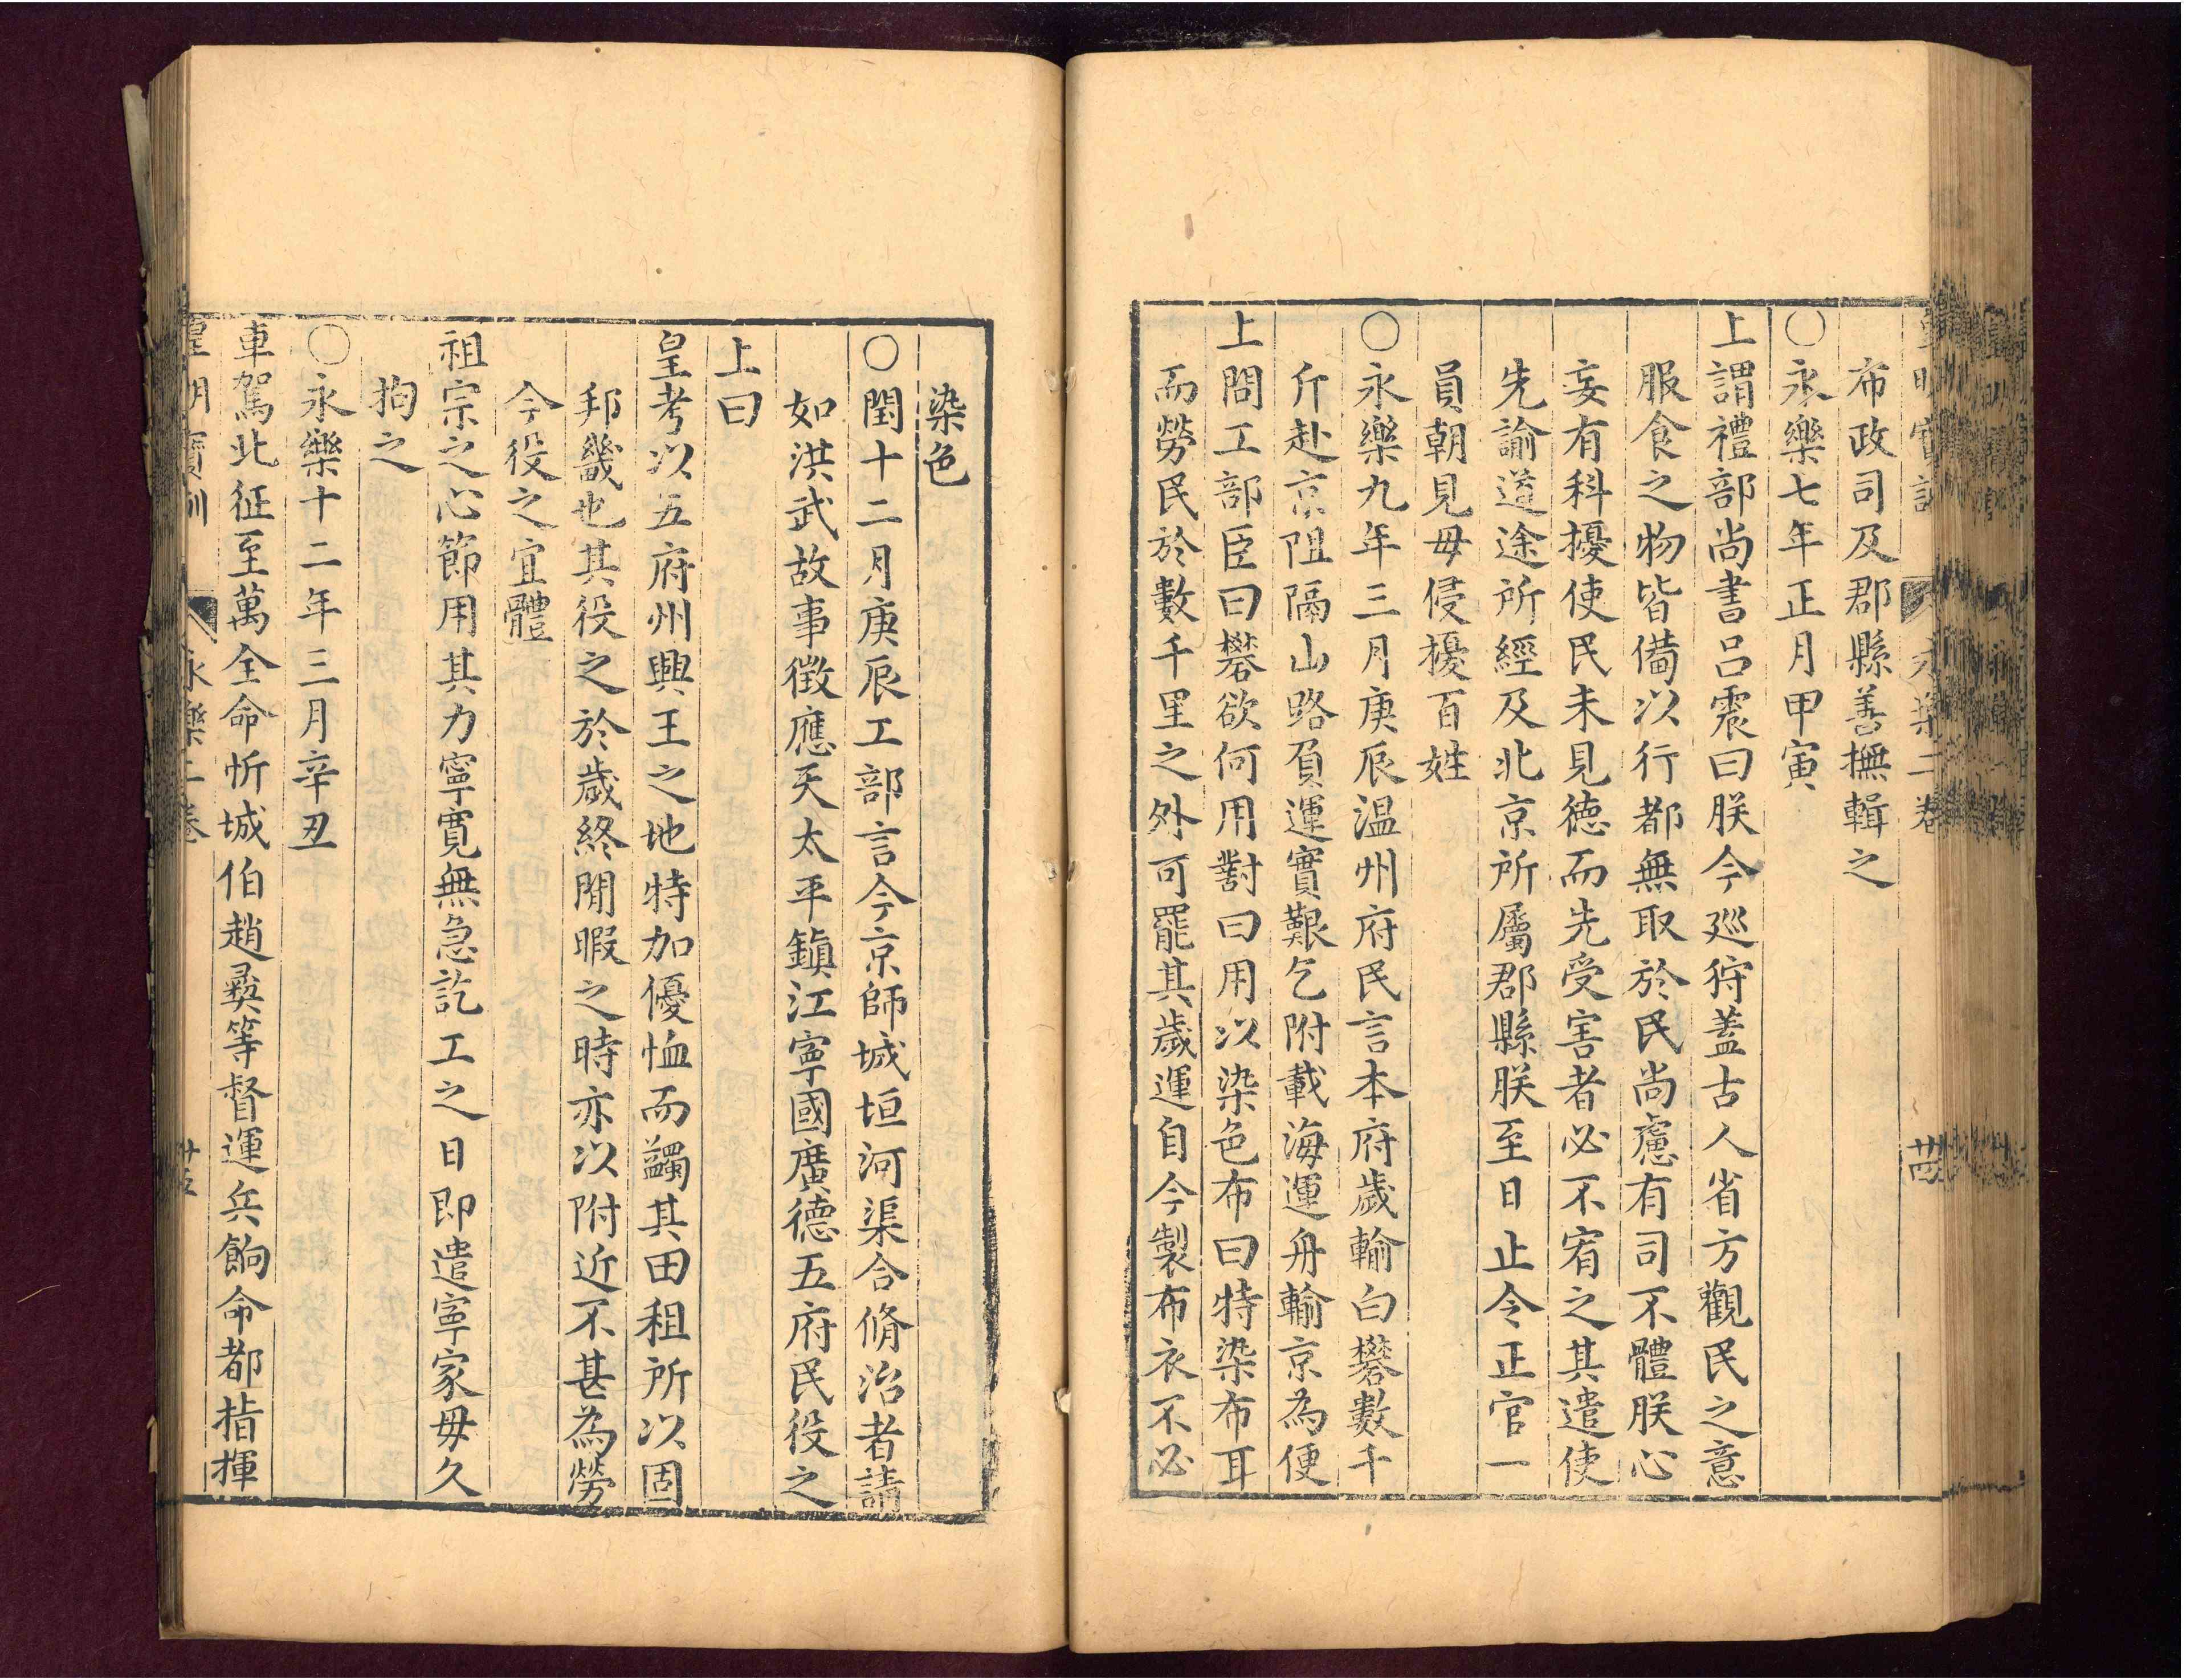 皇明寶訓 永樂二卷 廿四
布政司及郡縣善撫輯之
○永樂七年正月甲寅
上謂禮部尚書呂震曰朕今廵狩蓋古人省方觀民之意
服食之物皆備以行都無取於民尚慮有司不體朕心
妄有科擾使民未見德而先受害者必不宥之其遣使
先諭道途所經及北京所屬郡縣朕至日止令正官一
員朝見毋侵擾百姓
○永樂九年三月庚辰温州府民言本府歲輸白礬數千
斤赴京阻隔山路負運實艱乞附載海運舟輸京為便
上問工部臣曰礬欲何用對曰用以染色布曰特染布耳
而勞民於數千里之外可罷其歲運自今製布衣不必
染色
○閏十二月庚辰工部言今京師城垣河渠合脩治者請
如洪武故事徵應天太平鎮江寧國廣德五府民役之
上曰
皇考以五府州興王之地特加優恤而蠲其田租所以固
邦畿也其役之於歲終閒暇之時亦以附近不甚為勞
今役之宜體
祖宗之心節用其力寧寬無急訖工之日即遣寧家毋久
拘之
○永樂十二年三月辛丑
車駕北征至萬全命忻城伯趙彞等督運兵餉命都指揮
皇明寶訓 永樂二卷 廿五